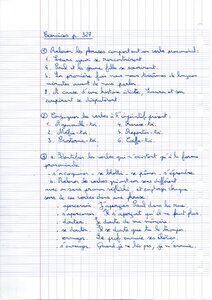 Exercices p. 327
① Relever les phrases comportant un verbe pronominal :
1. Laura pour se rencontrèrent
2. Paul et la jeune fille se souvinrent.
3. La première fois nous nous taisions de longues
minutes avant de nous parler.
4. À cause d'une histoire idiote, Laura et son
soupirant se disputèrent
② Conjuguer les verbes à l'impératif présent :
1. Agenouille-toi 4. Presse-toi
2. Méfie-toi 5. Repentis-toi
3. Prosterne-toi 6. Coiffe-toi
③ a. Identifier les verbes qui n'existent qu'à la forme
pronominale.
- s'évanouir - se blottir - se pâmer - s'éprendre.
b. Relever les verbes qui ont un sens différent
avec ou sans pronom réfléchi et employer chaque
sens de ces verbes dans une phrase.
- apercevoir : J'aperçois Paul dans la rue.
- s'apercevoir : Il s'aperçoit qu'il ne peut plus.
- douter : Je doute de ma mémoire
- se douter : Il se doute que tu le trompes.
- ennuyer : Le prof ennuie ses élèves
- s'ennuyer : Quand je ne lis pas, je m'ennuie.